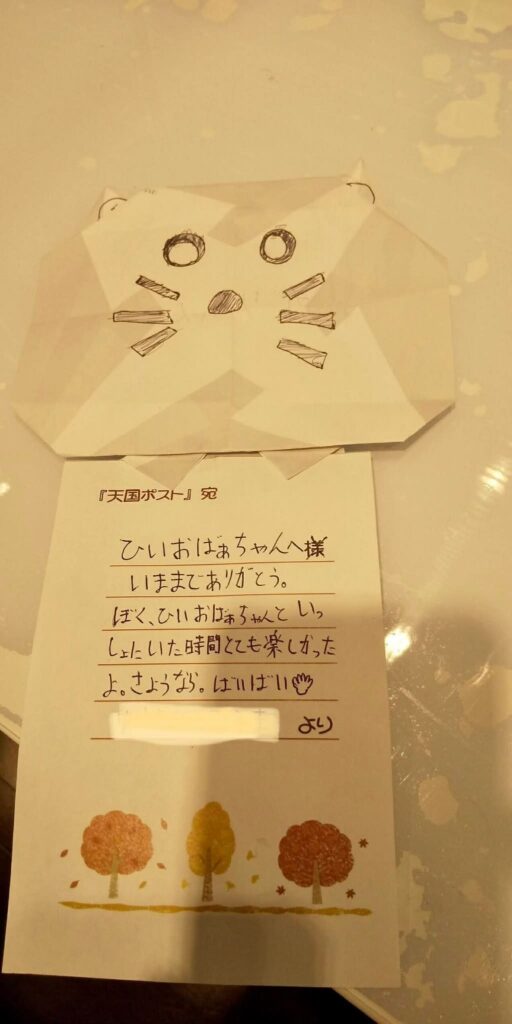 『天国ポスト』宛
ひいおばぁちゃんへ様
いままでありがとう。
ぼく、ひいおばぁちゃんといっ
しょにいた時間とても楽しかった
よ。さようなら。ばいばい
より